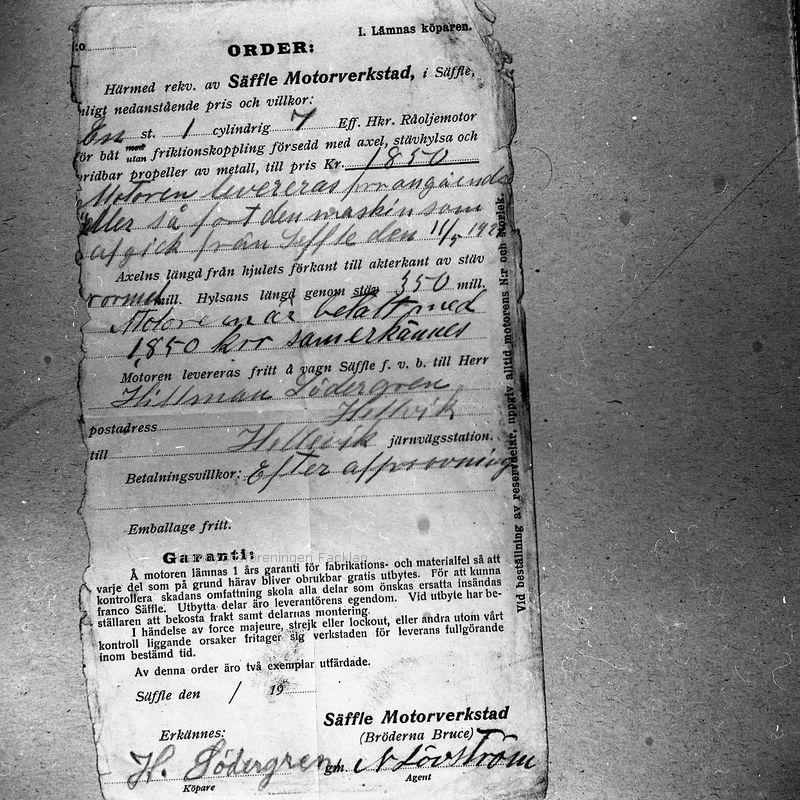 I. Lämnas köparen.
ORDER:
Härmed rekv. av Säffle Motorverkstad, i Säffle,
nligt nedanstående pris och villkor:
En st. 1 cylindrig 7 Eff. Hkr. Råoljemotor
ör båt med utan friktionskoppling försedd med axel, stävhylsa och
vridbar propeller av metall, till pris Kr. 1850
Motoren levereras
eller så fort den maskin som
afgick från Seffle den 11/5 192
Axelns längd från hjulets förkant till akterkant av stäv
normal mill. Hylsans längd genom stäv 350 mill.
Motoren är betalt med
1,850 kro samt erkännes
Motoren levereras fritt å vagn Säffle f. v. b. till Herr
Hillman Södergren
postadress Hellvik
till Hellevik järnvägsstation.
Betalningsvillkor: Efter afprovning
Emballage fritt.
Garanti:
föreningen Facklan
Å motoren lämnas 1 års garanti för fabrikations- och materialfel så att
varje del som på grund härav bliver obrukbar gratis utbytes. För att kunna
kontrollera skadans omfattning skola alla delar som önskas ersatta insändas
franco Säffle. Utbytta delar äro leverantörens egendom. Vid utbyte har be-
ställaren att bekosta frakt samt delarnas montering.
I händelse av force majeure, strejk eller lockout, eller andra utom vårt
kontroll liggande orsaker fritager sig verkstaden för leverans fullgörande
inom bestämd tid.
Av denna order äro två exemplar utfärdade.
Säffle den / 19
Säffle Motorverkstad
(Bröderna Bruce)
Erkännes:
H. Södergren gm. N Lövström
Köpare Agent
Vid beställning av reservdelar, uppgiv alltid motorens N:r och storlek.